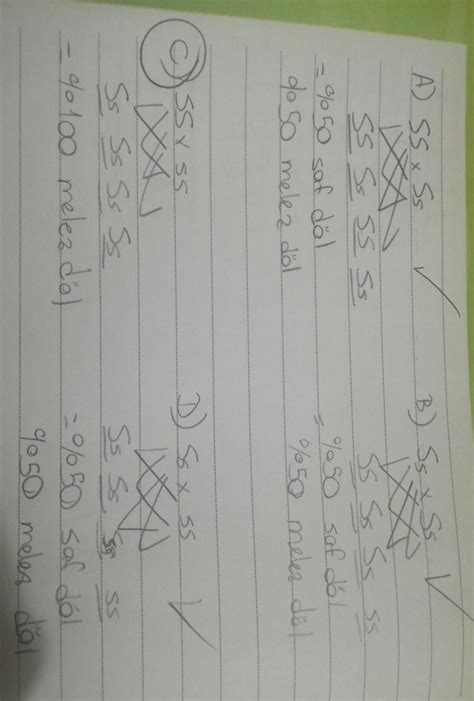 A) SS x Ss
SS Ss SS Ss
= %50 saf döl
%50 melez döl
B) Ss x Ss
SS Ss Ss ss
= %50 saf döl
%50 melez döl
C) SS x ss
Ss Ss Ss Ss
= %100 melez döl
D) Ss x ss
Ss Ss ss ss
= %50 saf döl
%50 melez döl